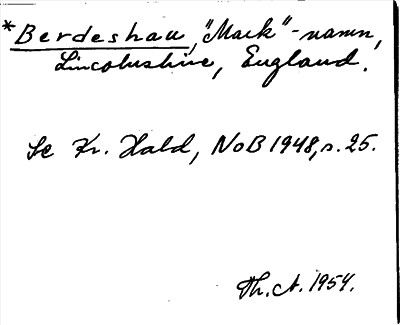 *Berdeshau, "Mark"-namn,
Lincolnshire, England.
Se Kr. Hald, NoB 1948, s. 25.
Th. A. 1954.